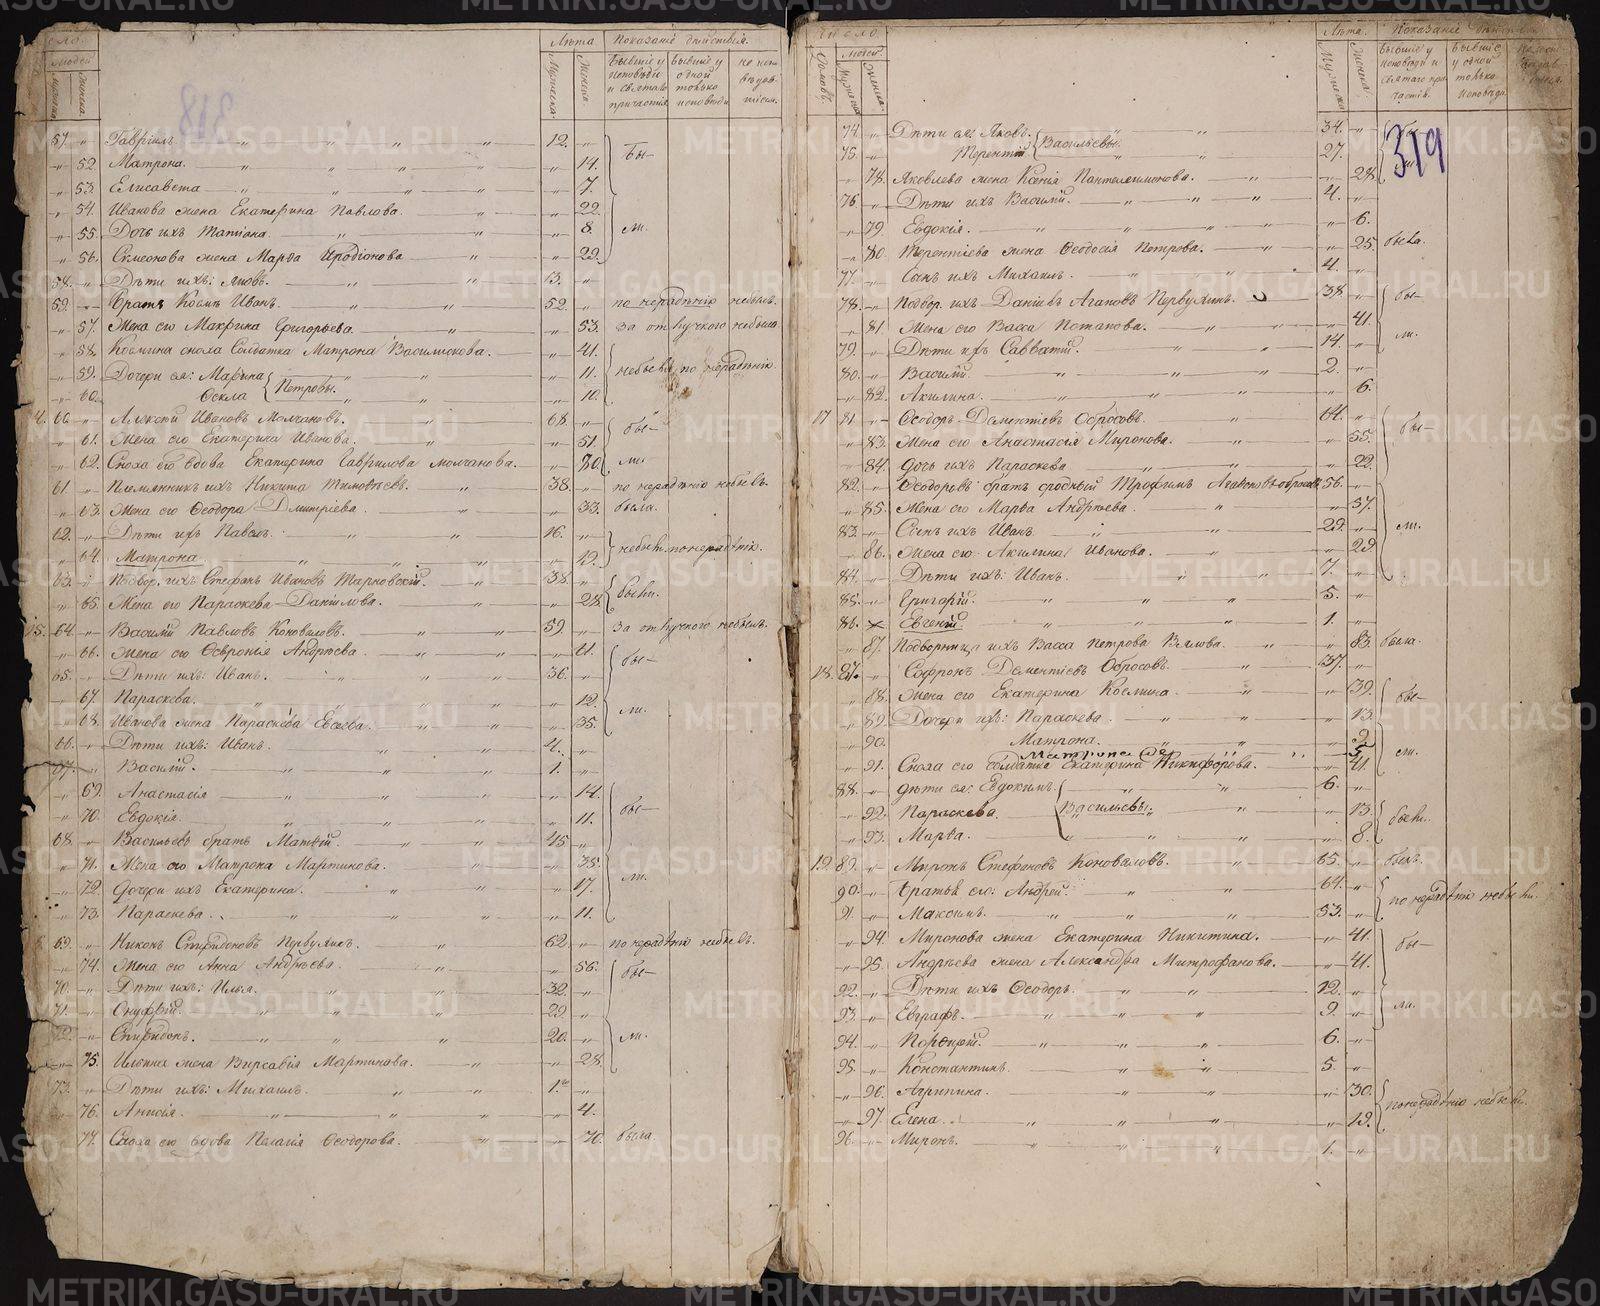 Лѣта Показаніе дѣйствія.
людей
Мужеска
Женска
Мужеска
Женска
Бывшіе у исповѣди и святаго причастія
Бывшіе у одной только исповѣди
57. Гавріилъ 12.
52. Матрона. 14. Бы-
53. Елисавета 7.
54. Иванова жена Екатерина Павлова. 22.
55. Дочь ихъ Татіана. 8. ли.
56. Семенова жена Марѳа Иродіонова 29.
58. Дѣти ихъ: Яковъ. 13.
59. Братъ Козмъ Иванъ. 52. по нерадѣнію небылъ.
57. Жена его Макрина Григорьева. 53. За отлучкою небыла
58. Козмина сноха Солдатка Матрона Василискова. 41.
59. Дочери ея: Марина 11. небыли по нерадѣнію
60. Ѳекла Петровы. 10.
60. Алексѣй Ивановъ Молчановъ. 68. бы-
61. Жена его Екатерина Иванова. 51.
62. Сноха его вдова Екатерина Гаврилова Молчанова. 70. ли.
61. Племянникъ ихъ Никита Тимоѳеевъ. 38. по нерадѣнію небылъ.
63. Жена его Ѳеодора Дмитріева. 33. была.
62. Дѣти ихъ Павелъ. 16.
64. Матрона 12. небыли по нерадѣнію.
63. Подвор. ихъ Стефанъ Ивановъ Тарновскій. 38.
65. Жена его Параскева Даніилова. 28. были.
15. 64. Василій Павловъ Коноваловъ. 59. За отлучкою небылъ.
66. Жена его Ѳевронья Андреева. 61.
65. Дѣти ихъ: Иванъ. 36. бы-
67. Параскева. 12.
68. Иванова жена Параскева Евсеева. 35. ли.
66. Дѣти ихъ: Иванъ. 4.
67. Василій. 1.
69. Анастасія 14.
70. Евдокія. 11. бы-
68. Васильевъ братъ Матвѣй. 45.
71. Жена его Матрона Мартинова. 35.
72. Дочери ихъ Екатерина. 17. ли.
73. Параскева. 11.
69. Никонъ Спиридоновъ Первухинъ. 62. по нерадѣнію небылъ.
74. Жена его Анна Андреева. 56. бы-
70. Дѣти ихъ: Илья. 32.
71. Онуфрій. 29.
72. Спиридонъ. 20. ли.
75. Ильина жена Вирсавія Мартинова. 28.
73. Дѣти ихъ: Михаилъ. 1.
76. Анисія. 4.
77. Сноха его вдова Пелагія Ѳеодорова. 70. была.
Число
Домовъ.
людей
Мужеска
Женска
Лѣта. Показаніе
Мужеска
Женска
Бывшіе у исповѣди и святаго причастія.
Бывшіе у одной только исповѣди
319
74. Дѣти ея: Яковъ. 34.
75. Терентій Васильевы. 27.
78. Яковлева жена Ксенія Пантелеимонова. 28.
76. Дѣти ихъ Василій. 4.
79. Евдокія. 6.
80. Терентіева жена Ѳеодосія Петрова. 25. была.
77. Сынъ ихъ Михаилъ. 4.
78. Подвор. ихъ Даніилъ Агаповъ Первухинъ. 38. бы-
81. Жена его Васса Потапова. 41.
79. Дѣти ихъ Савватій. 14. ли.
80. Василій. 2.
82. Акилина. 6.
17 81. Ѳеодоръ Дементіевъ Обросовъ. 64. бы-
83. Жена его Анастасія Миронова. 55.
84. Дочь ихъ Параскева 22.
82. Ѳеодоровъ братъ сродный Трофимъ Агаповъ Обросовъ 56.
85. Жена его Марѳа Андреева. 57.
83. Сынъ ихъ Иванъ. 29. ли.
86. Жена его Акилина Иванова. 29.
84. Дѣти ихъ: Иванъ. 7.
85. Григорій. 5.
86. Евгеній. 1.
87. Подворница ихъ Васса Петрова Вялова. 83. была.
18. 87. Софронъ Дементіевъ Обросовъ. 37.
88. Жена его Екатерина Козмина. 39. бы-
89. Дочери ихъ: Параскева. 13.
90. Матрона. 9.
Матрона 2я 5 ли.
91. Сноха его Солдатка Екатерина Никифорова. 41.
88. Дѣти ея: Евдокимъ 6.
92. Параскева. Васильевы. 13. были.
93. Марѳа. 8.
19. 89. Миронъ Стефановъ Коноваловъ. 65. былъ.
90. Братья его: Андрей. 64.
91. Максимъ. 53. по нерадѣнію небыли.
94. Миронова жена Екатерина Никитина. 41. бы-
95. Андреева жена Александра Митрофанова. 41.
92. Дѣти ихъ Ѳеодоръ. 12.
93. Евграфъ. 9. ли.
94. Порфирій. 6.
95. Константинъ. 5.
96. Агрипина. 30.
97. Елена. 19. по нерадѣнію небыли.
96. Миронъ. 1.
METRIKI.GASO-URAL.RU